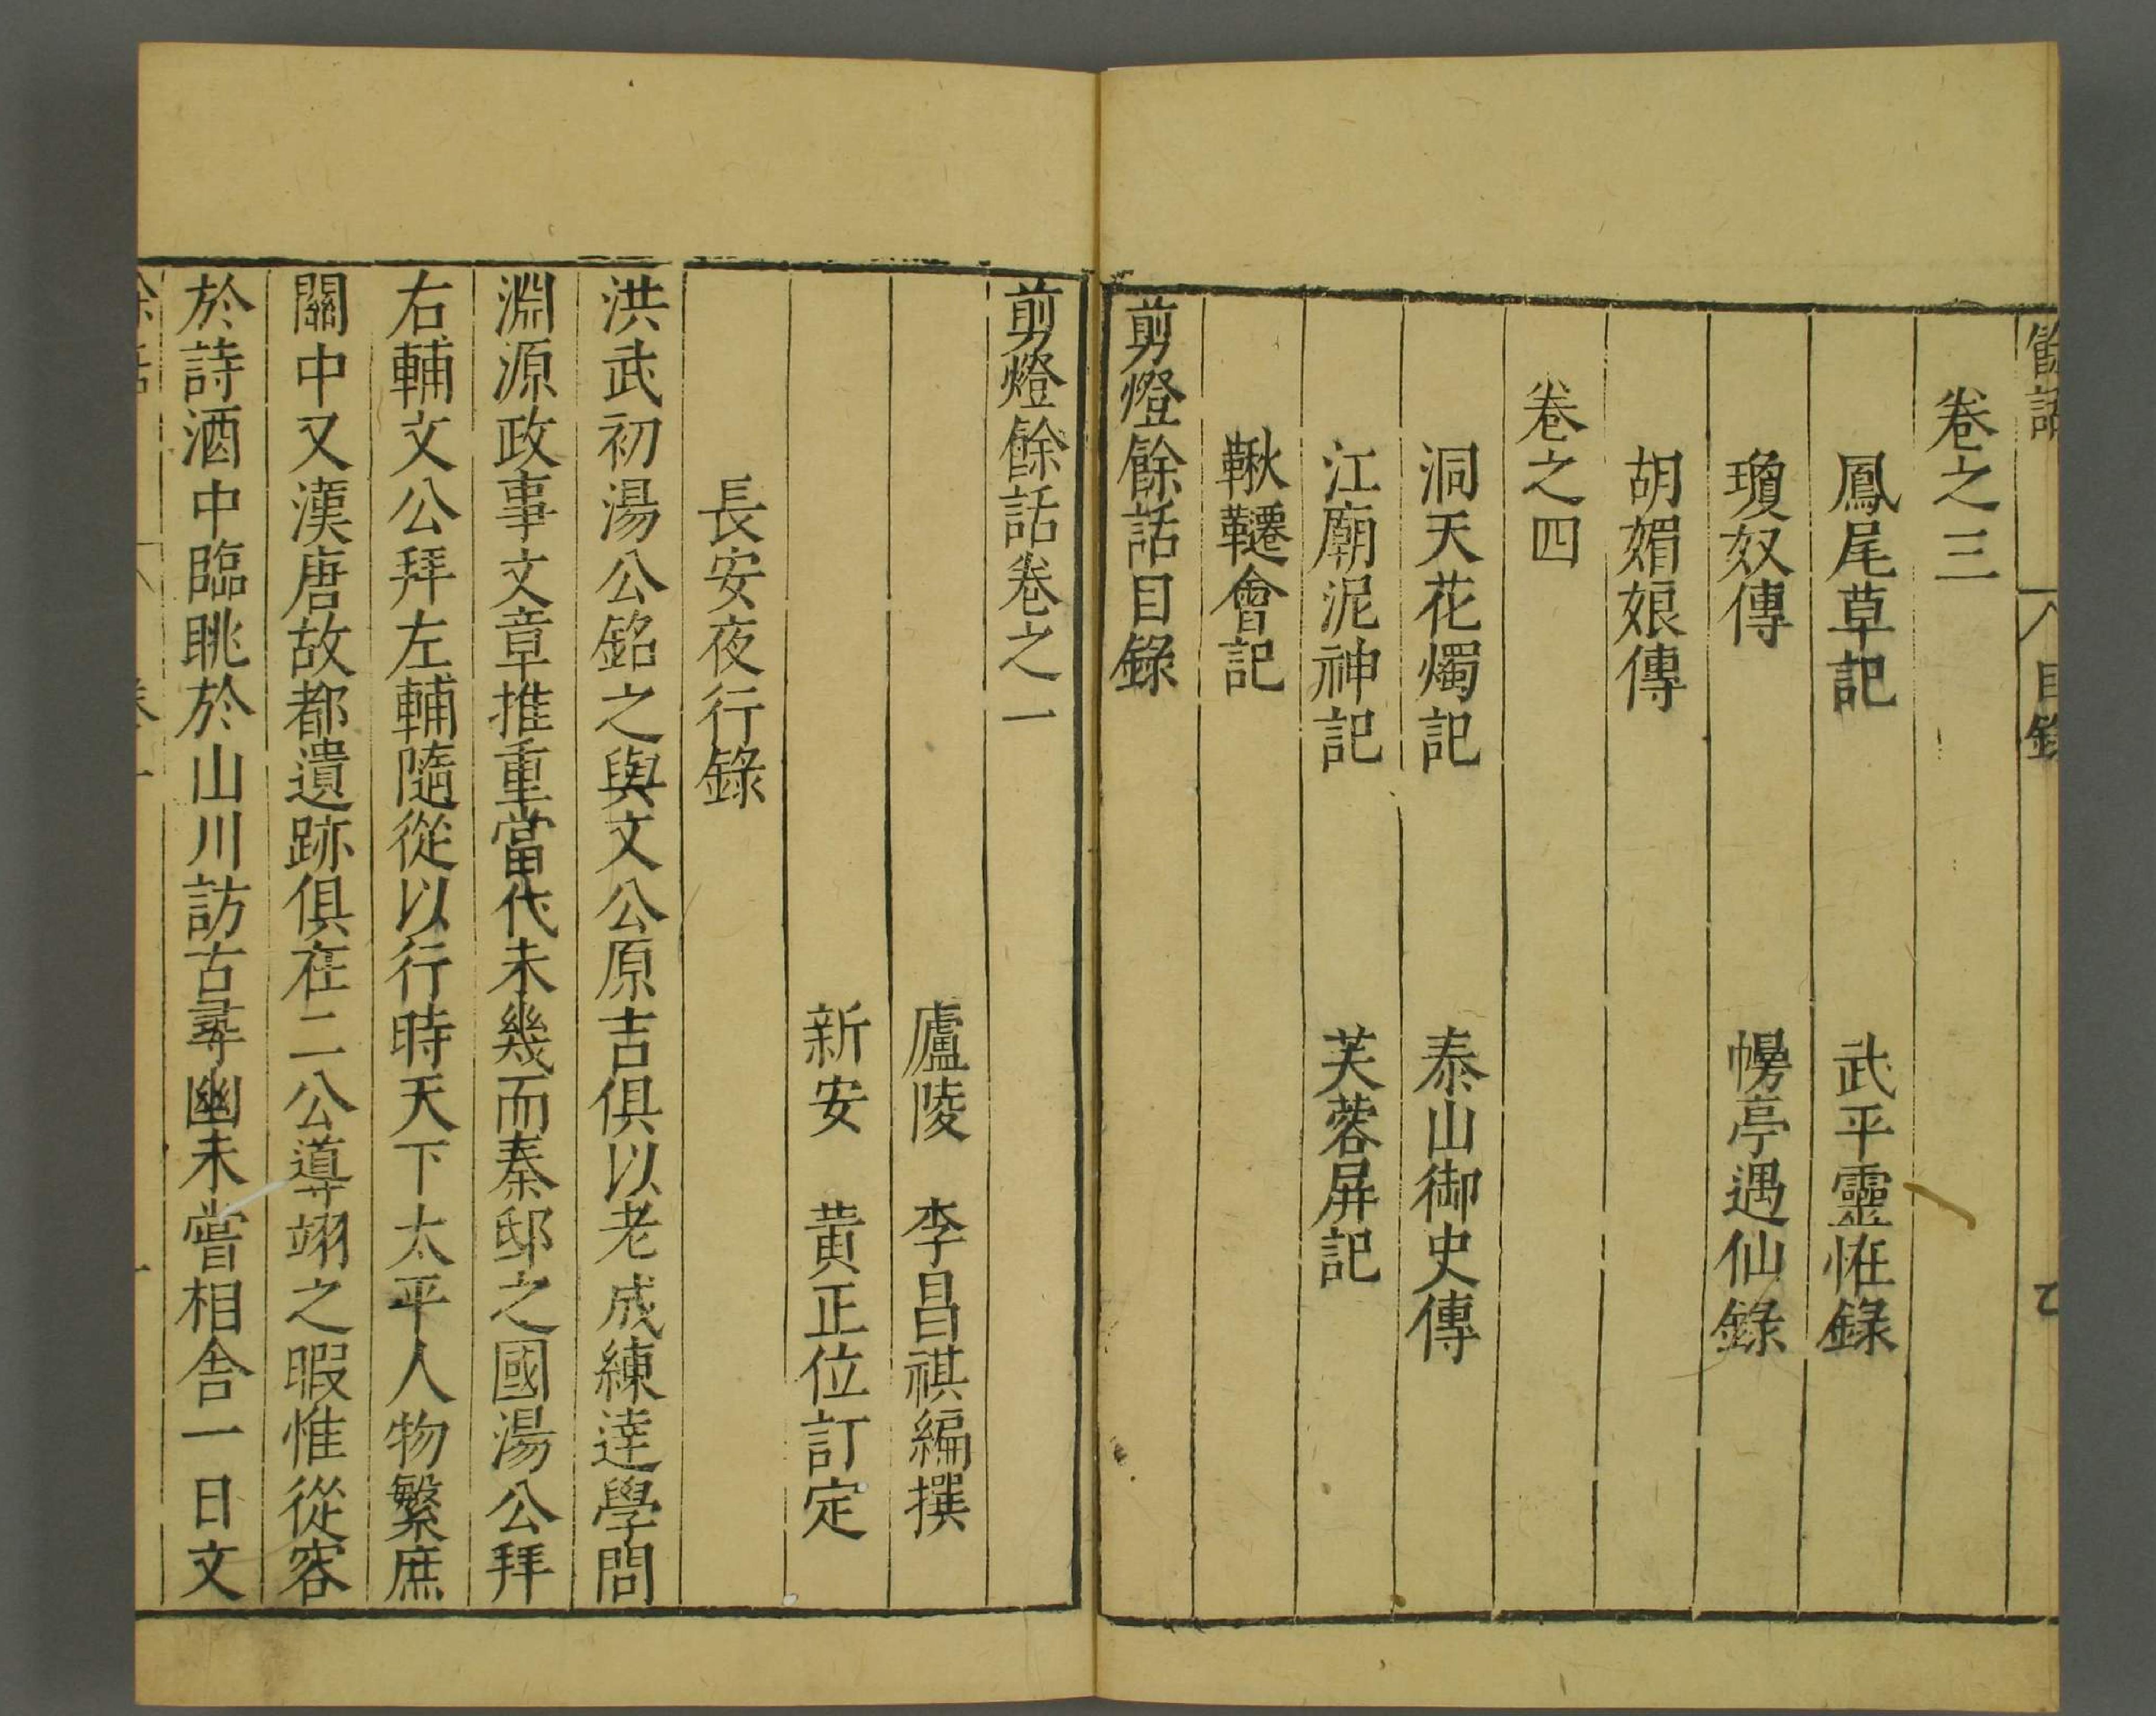 卷之三
鳳尾草記　武平靈恠錄
瓊奴傳　幔亭遇仙錄
胡媚娘傳
卷之四
洞天花燭記　泰山御史傳
江廟泥神記　芙蓉屏記
鞦韆會記
剪燈餘話目錄
剪燈餘話卷之一
廬陵　李昌祺編撰
新安　黃正位訂定
長安夜行錄
洪武初湯公銘之與文公原吉俱以老成練達學問
淵源政事文章推重當代未幾而秦邸之國湯公拜
右輔文公拜左輔隨從以行時天下太平人物繁庶
關中又漢唐故都遺跡俱在二公導翊之暇惟從容
於詩酒中臨眺於山川訪古尋幽未嘗相舍一日文